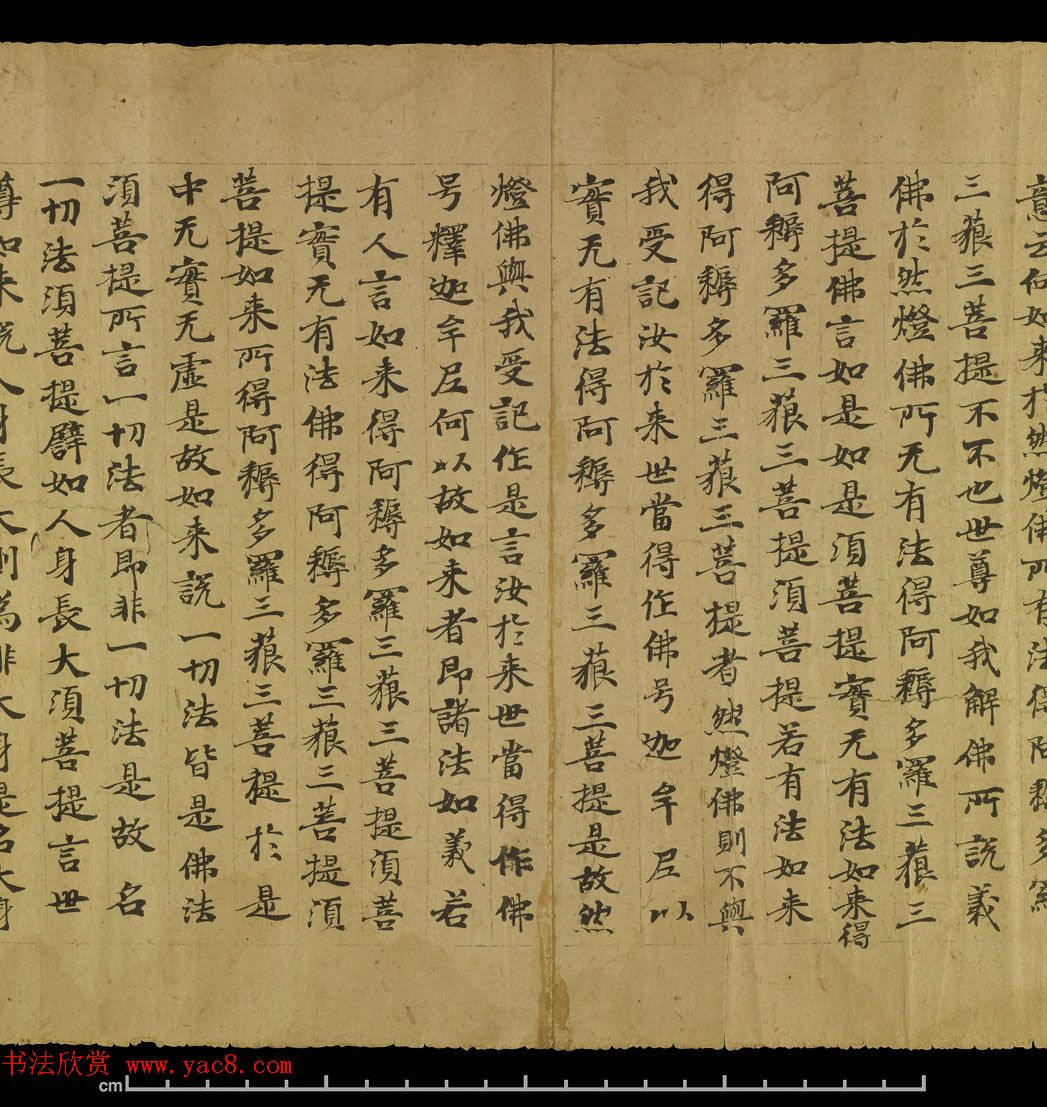 意云何如来於然燈佛所有法得阿耨多羅
三藐三菩提不不也世尊如我解佛所說義
佛於然燈佛所无有法得阿耨多羅三藐三
菩提佛言如是如是須菩提實无有法如来得
阿耨多羅三藐三菩提須菩提若有法如来
得阿耨多羅三藐三菩提者然燈佛則不與
我受記汝於来世當得作佛号迦牟尼以
實无有法得阿耨多羅三藐三菩提是故然
燈佛與我受記作是言汝於来世當得作佛
号釋迦牟尼何以故如来者即諸法如義若
有人言如来得阿耨多羅三藐三菩提須菩
提實无有法佛得阿耨多羅三藐三菩提須
菩提如来所得阿耨多羅三藐三菩提於是
中无實无虛是故如来說一切法皆是佛法
須菩提所言一切法者即非一切法是故名
一切法須菩提譬如人身長大須菩提言世
尊如来說人身長大則為非大身是名大身
书法欣赏 www.yac8.com
cm